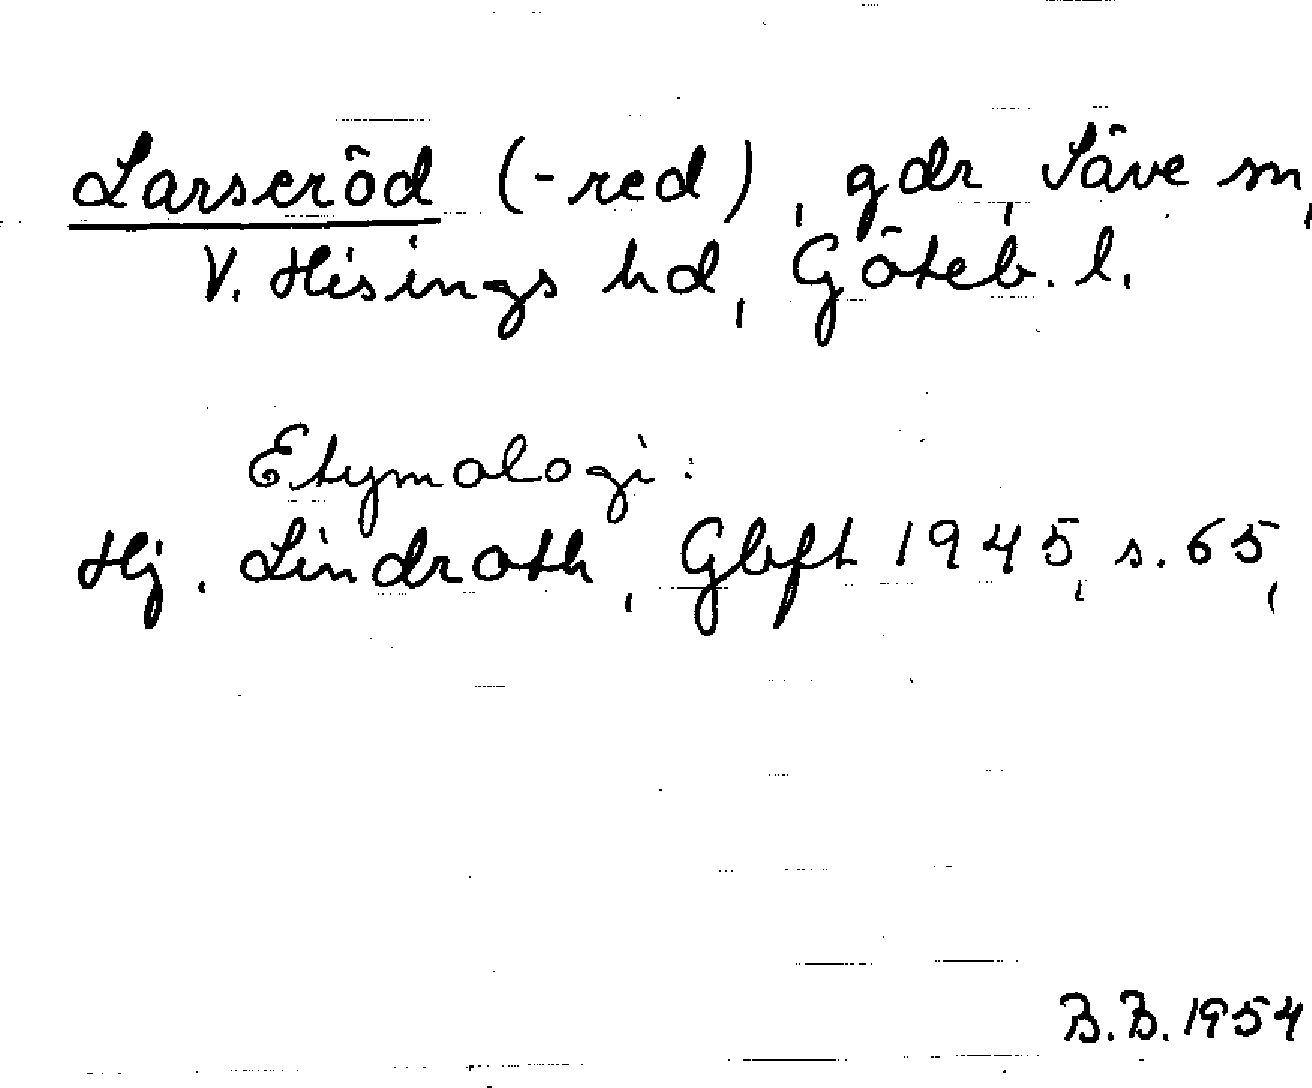 Larseröd (-red), gdr, Säve sn,
V. Hisings hd, Göteb. l.
Etymologi:
Hj. Lindroth, Gbft 1945, s. 65,
B.B. 1954